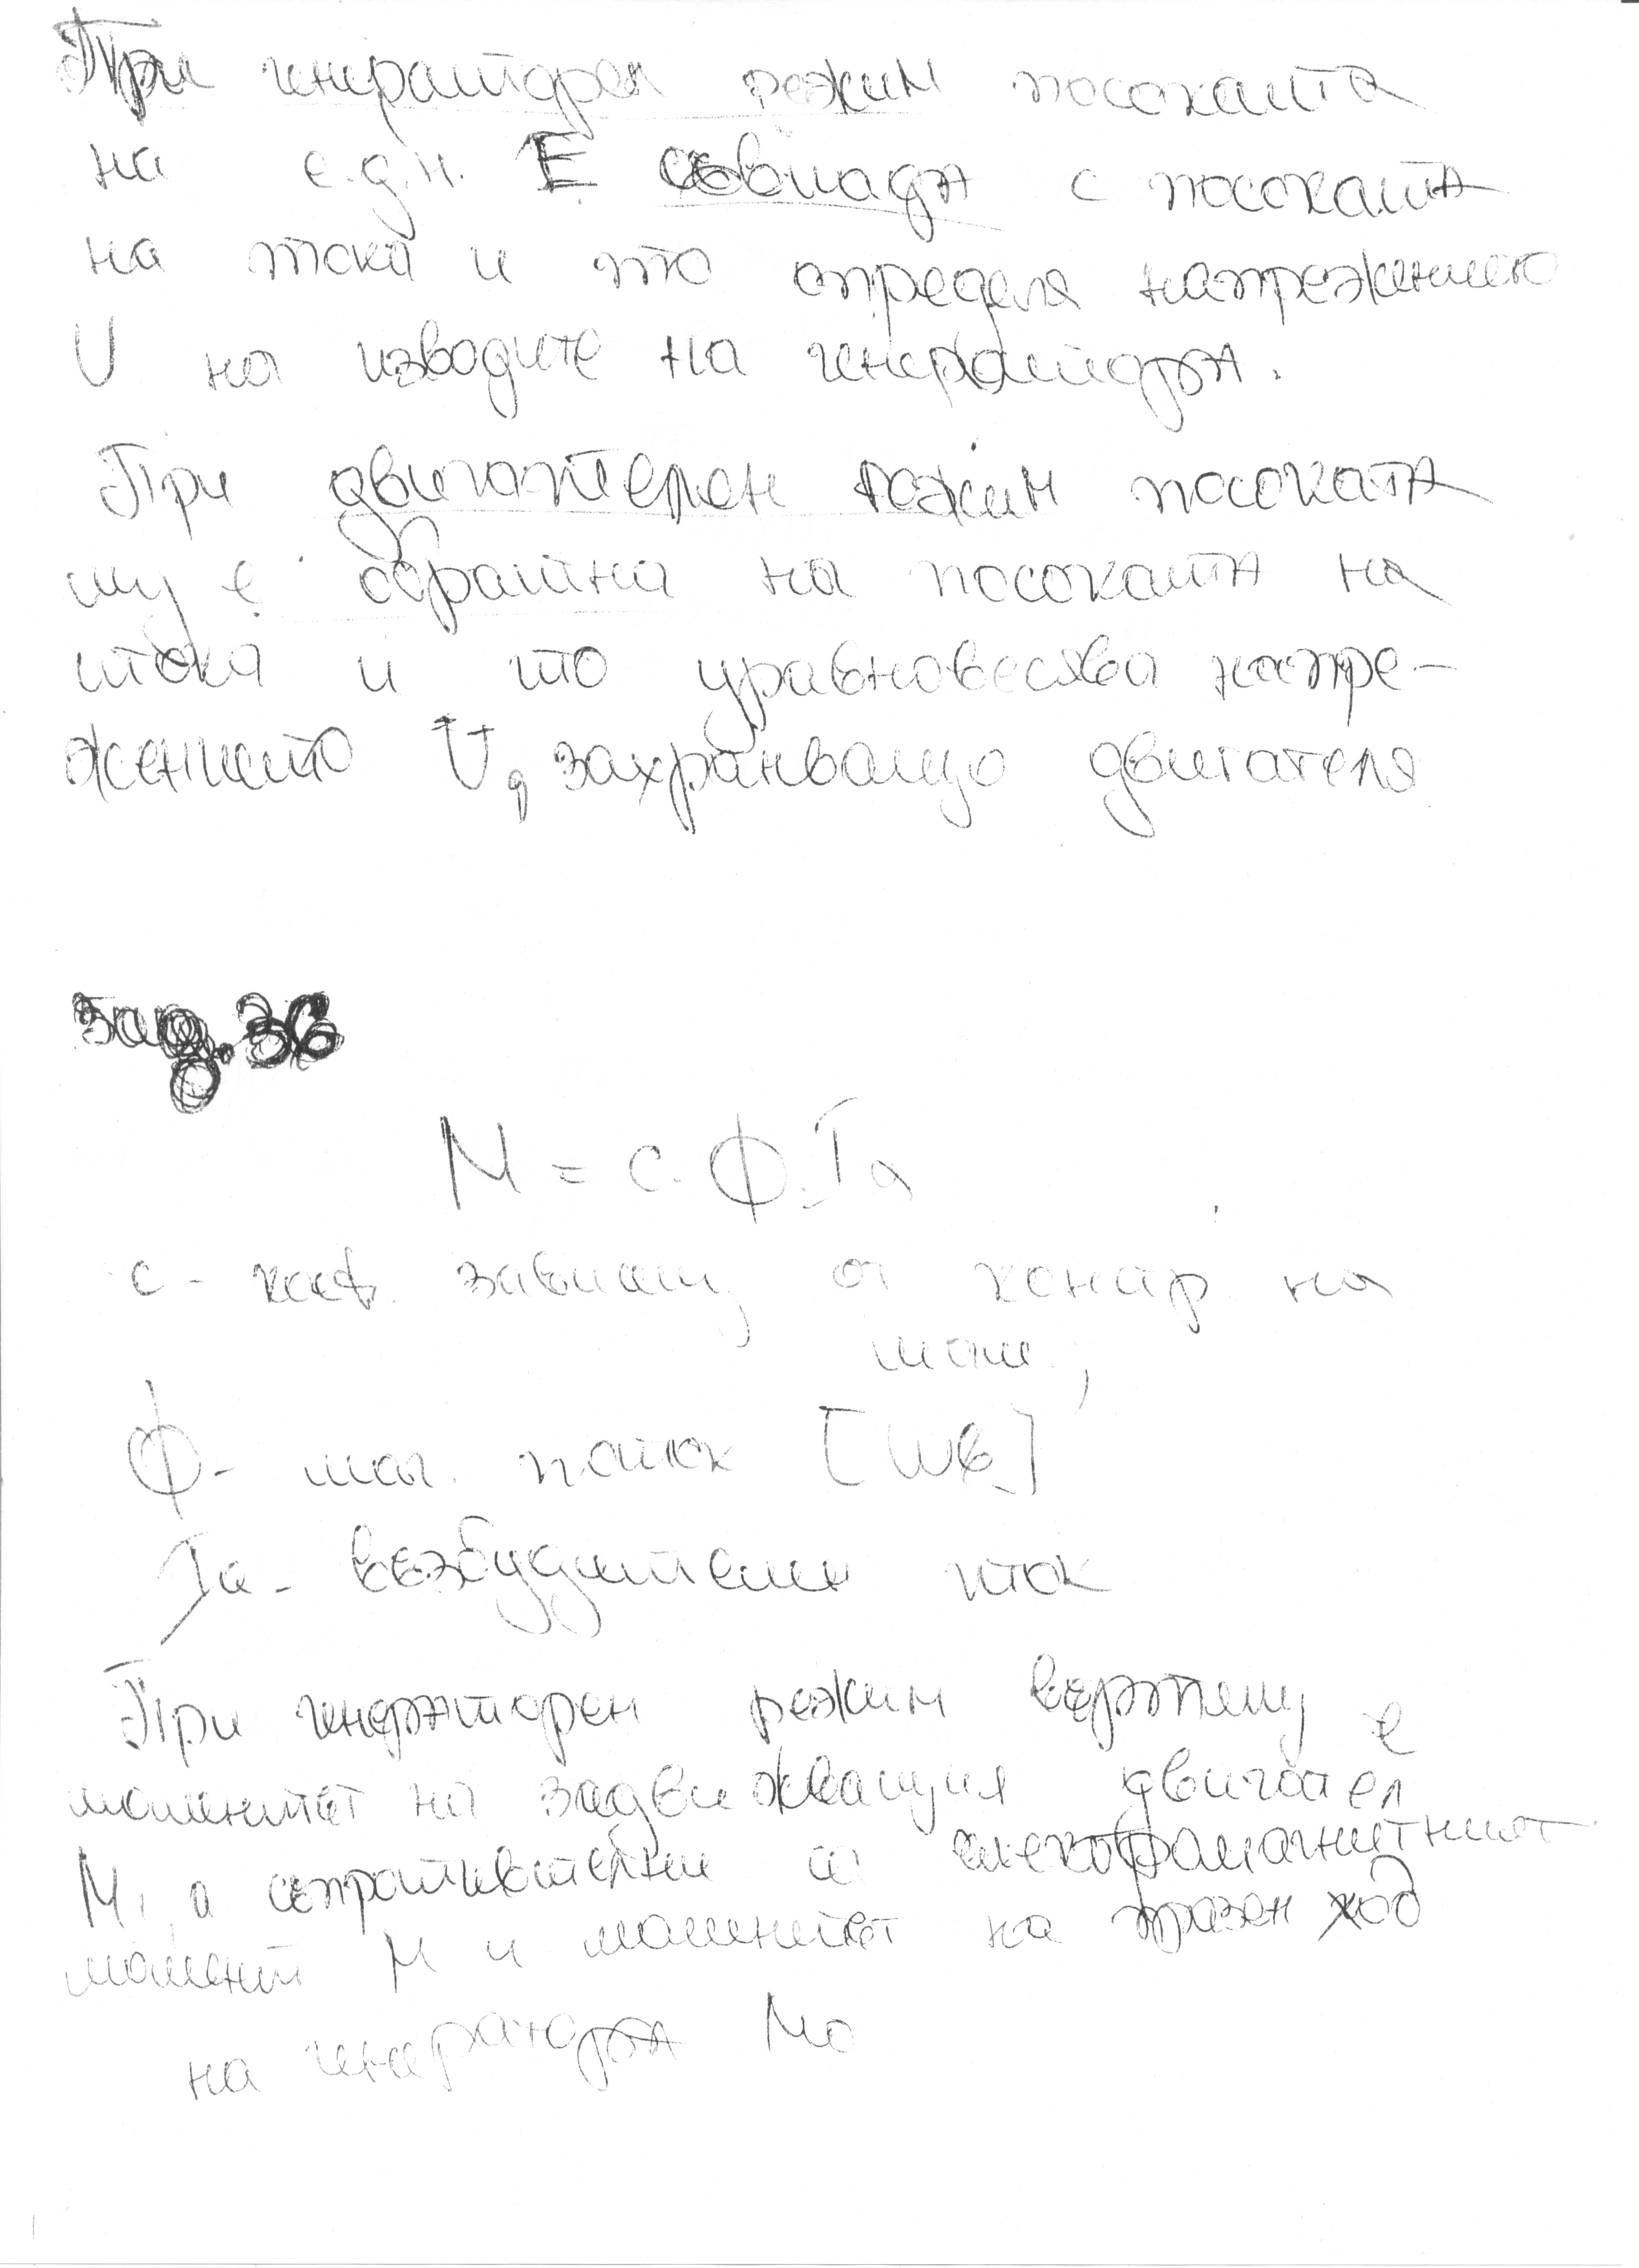 При генераторен режим посоката
на е.д.н. E съвпада с посоката
на тока и то определя напрежението
U на изводите на генератора.
При двигателен режим посоката
му е обратна на посоката на
тока и то уравновесява напре-
жението U, захранващо двигателя
зад. 36
M = c. Ф. Ia
c - коеф. зависещ от констр. на
маш.,
Ф - маг. поток [Wb]
Ia - възбудителен ток
При генераторен режим въртящ е
моментът на задвижващия двигател
M1, а съпротивителни са електромагнитният
момент M и моментът на празен ход
на генератора M0